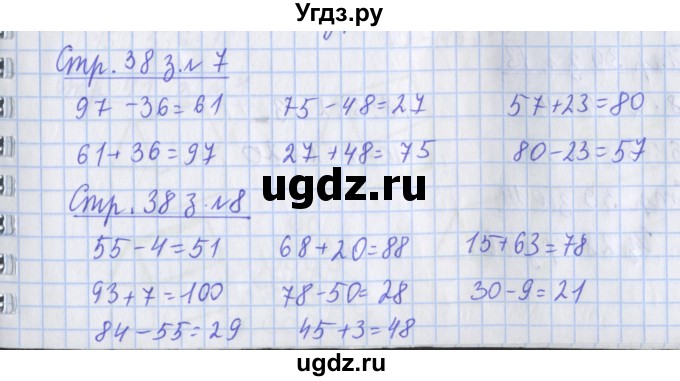 Угдз.ру
Стр. 38 з. № 7
97 - 36 = 61 75 - 48 = 27 57 + 23 = 80
61 + 36 = 97 27 + 48 = 75 80 - 23 = 57
ugdz.ru
Стр. 38 з. № 8
55 - 4 = 51 68 + 20 = 88 15 + 63 = 78
93 + 7 = 100 78 - 50 = 28 30 - 9 = 21
84 - 55 = 29 45 + 3 = 48
ugdz.ru